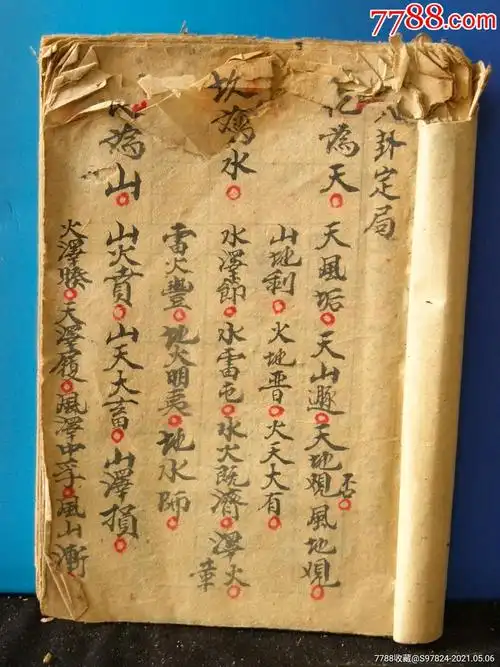 7788.com
八卦定局
為天 天風垢 天山遯 天地觀風地觀
否
山地剝 火地晋 火天大有
坎為水 水澤節 水雷屯 水火既濟 澤火革
雷火豐 地火明夷 地水師
為山 山火賁 山天大畜 山澤損
火澤睽 天澤履 風澤中孚 風山漸
7788收藏@S97824-2021.05.06